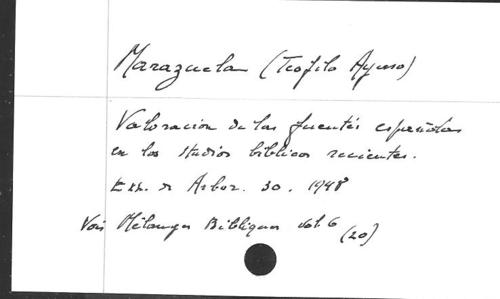 Marazuela (Teofilo Ayuso)
Valoracion de las fuentes españolas
en los studios biblicos recientes.
Ex. Arbor. 30. 1948
Voir Mélanges Bibliques vol. 6
(20)